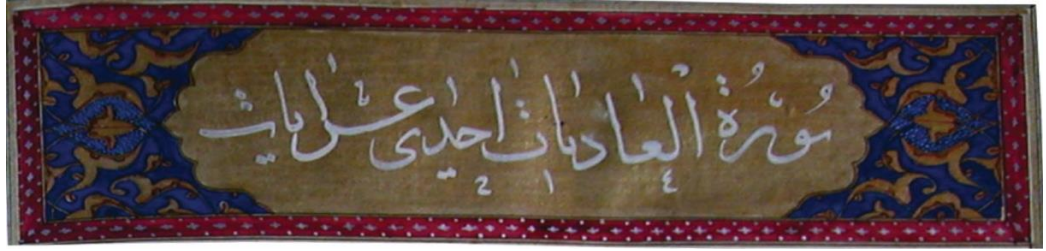 سورة العاديات احدى عشر ايات